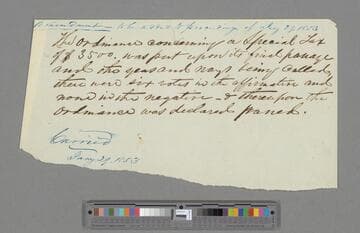 to be added to proceedings of Jany 29 1853
The Ordinance concerning a Special Tax
of $3500. was put upon its final passage
and the yeas and nays being called,
there were six votes in the affirmative and
none in the negative - & thereupon the
Ordinance was declared passed.
Carried
Jany 29. 1853